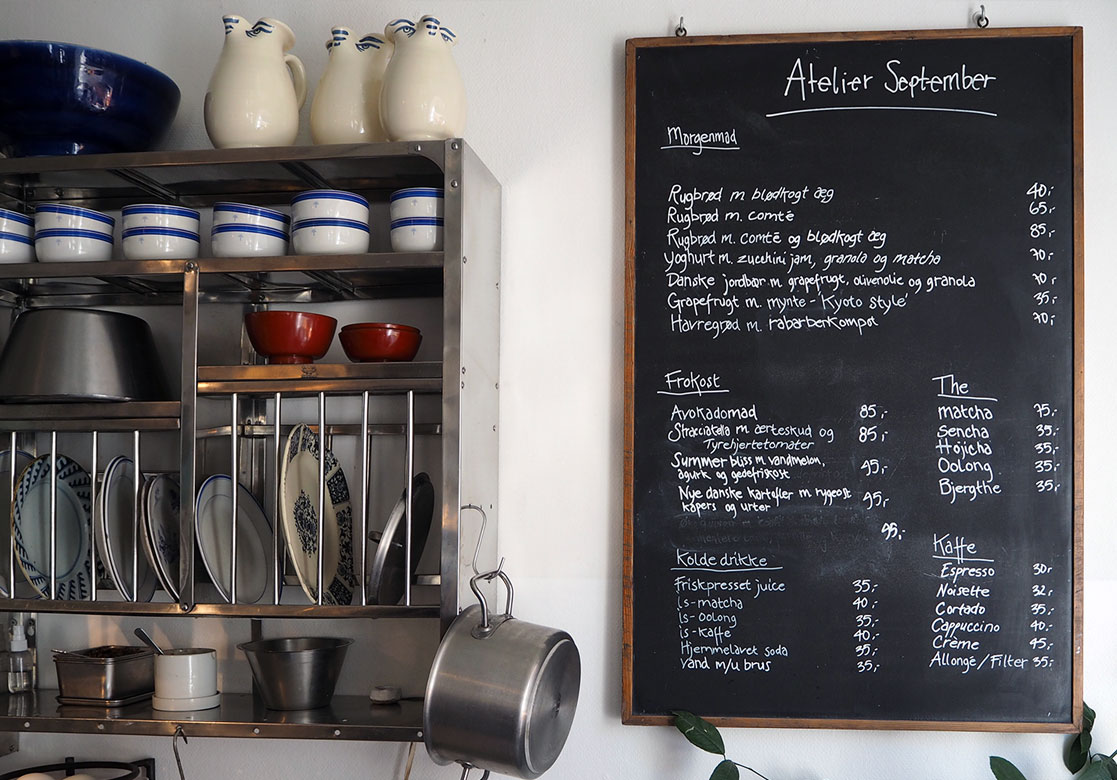 Atelier September
Morgenmad
Rugbrød m blødkogt æg 40,-
Rugbrød m. comté 65,-
Rugbrød m. comté og blødkogt æg 85,-
Yoghurt m. zucchini jam, granola og matcha 70,-
Danske jordbær m. grapefrugt, olivenolie og granola 70,-
Grapefrugt m. mynte - 'Kyoto style' 35,-
Havregrød m. rabarberkompot 70,-
Frokost
Avokadomad 85,-
Stracciatella m ærteskud og 85,-
Tyrehjertetomater
Summer bliss m vandmelon,
agurk og gedefriskost 45,-
Nye danske kartofler m rygeost 95,-
kapers og urter
95,-
Kolde drikke
Friskpresset juice 35,-
Is-matcha 40,-
Is-oolong 35,-
is-kaffe 40,-
Hjemmelavet soda 35,-
Vand m/u brus 35,-
The
matcha 75,-
sencha 35,-
Hojicha 35,-
Oolong 35,-
Bjergthe 35,-
Kaffe
Espresso 30,-
Noisette 32,-
Cortado 35,-
Cappuccino 40,-
Crème 45,-
Allongé/Filter 35,-